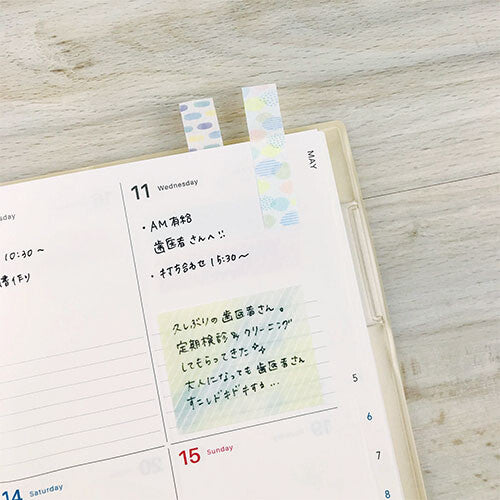 MAY
11 Wednesday
・AM有給
歯医者さんへ!!
・打ち合わせ 15:30～
久しぶりの歯医者さん。
定期検診&クリーニング
してもらってきた
大人になっても歯医者さん
すこしドキドキするか…
sday
10:30～
書作り
14 Saturday
15 Sunday
5
6
7
8